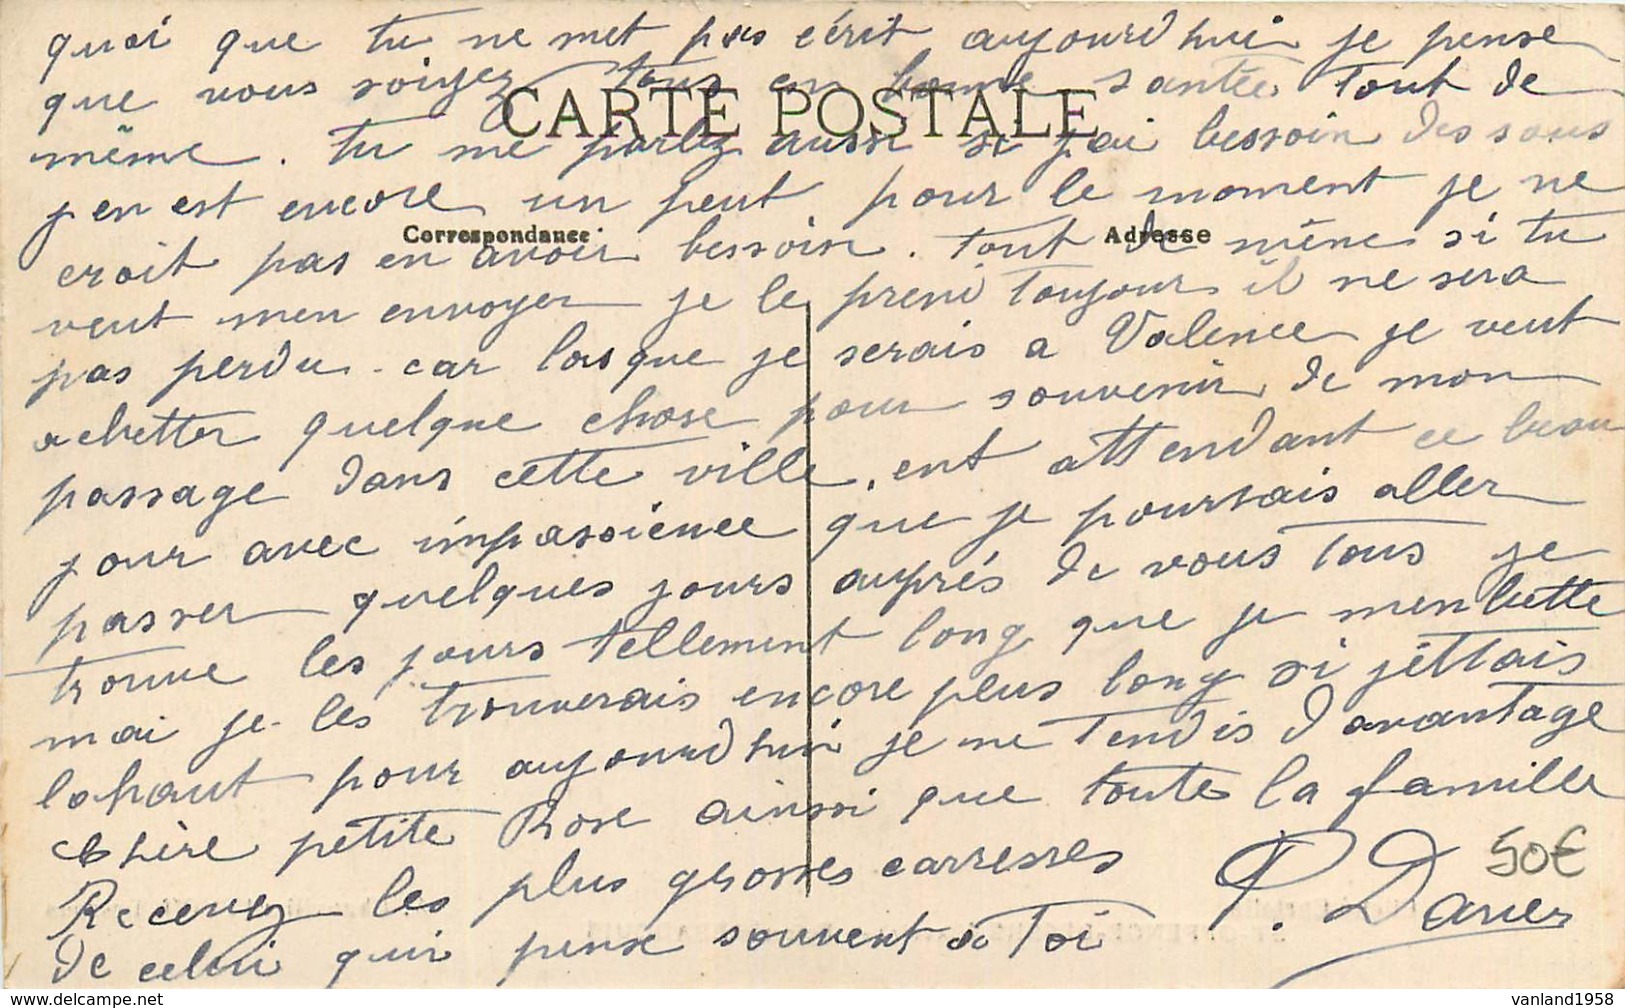 quoi que tu ne met pas écrit aujourdhui je pense
que vous soiyez tous en bonne santée tout de
CARTE POSTALE
même. tu me parlez aussi si j'ai bessoin des sous
j en est encore un peut pour le moment je ne
Correspondance
Adresse
croit pas en avoir bessoin. tout de même si tu
veut men envoyer je le prend toujours il ne sera
pas perdu. car lorsque je serais a Valence je veut
achetter quelque chose pour souvenir de mon
passage dans cette ville, ent attendant ce beau
jour avec impassience que je poursais aller
passer quelques jours auprés de vous tous je
trouve les jours tellement long que je menbette
moi je les trouverais encore plus long si jéttais
lahaut pour aujourdhui je ne tendis davantage
chère petite Rose ainsi que toute la famille
Recevez les plus grosses carresses
de celui qui pense souvent a Toi
P. Daver
50€
vanland1958
www.delcampe.net